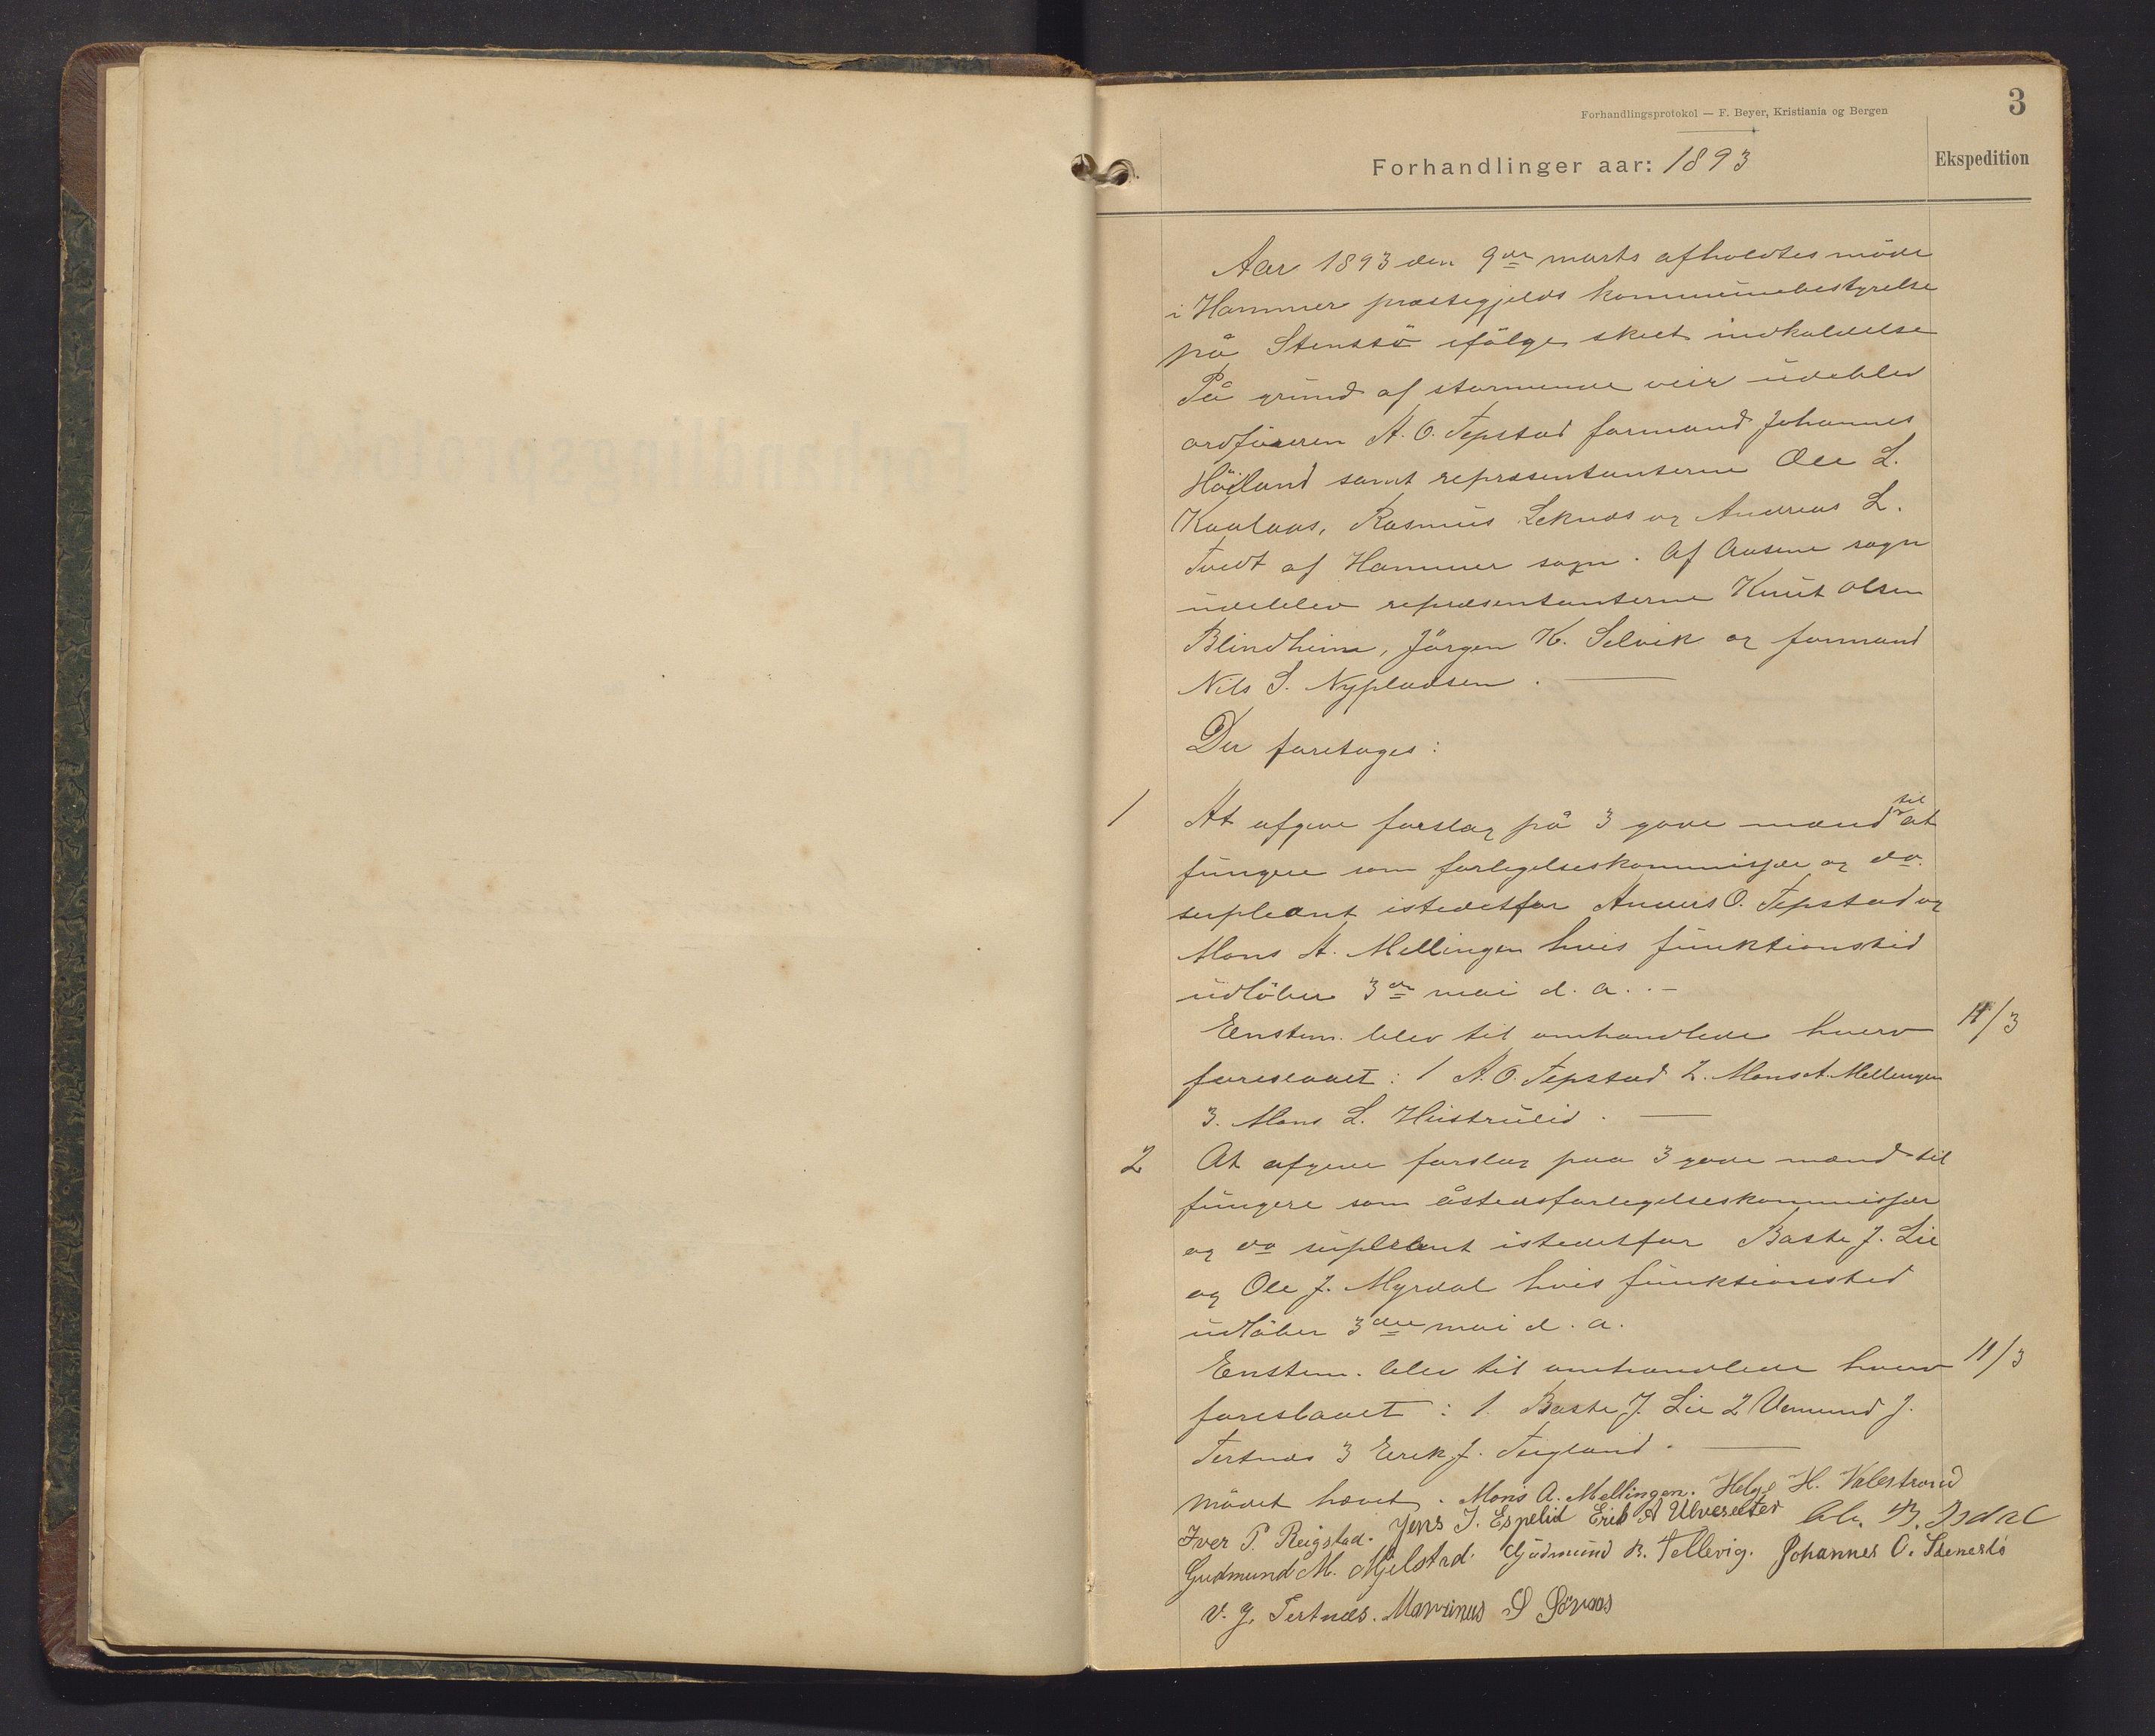 3
Forhandlingsprotokol — F. Beyer, Kristiania og Bergen
Forhandlinger aar: 1893
Ekspedition
Aar 1893 den 9de marts afholdtes möde
i Hammer præstegjelds kommunebestyrelse
på Stenstö ifölge skeet indkaldelse
På grund af stormende veir udeblev
ordföreren A. O. Tepstad formand Johannes
Höiland samt repræsentanterne Ole L.
Kaalaas, Rasmus Leknes og Andreas L.
Tvedt af Hammer sogn. Af Aasene sogn
udeblev repræsentanterne Knut Olsen
Blindheim, Jörgen K. Selvik og formand
Nils S. Nypladsen.
Der foretoges:
1 At afgive forslag på 3 gode mænd til at
fungere som forligelseskommissær og do.
supleant istedetfor Anders O. Tepstad og
Mons A. Mellingen hvis funktionstid
udlöber 3de mai d. a. —
Enstem. blev til omhandlede hverv 11/3
foreslaaet: 1 A. O. Tepstad 2. Mons A. Mellingen
3. Mons L. Hustrulid.
2 At afgive forslag paa 3 gode mænd til
fungere som åstedsforligelseskommissær
og do supleant istedetfor Baste J. Lie
og Ole J. Myrdal hvis funktionstid
udlöber 3die mai d. a.
Enstem. blev til omhandlede hverv 11/3
foreslaaet: 1. Baste J. Lie 2 Vemund J.
Tertnes 3 Eerik J. Teigland.
Mödet hævet. Mons A. Mellingen. Helge H. Valestrand
Iver P. Reigstad. Jens J. Espelid Erik A Ulvesæter B. Isdal
Gudmund M. Mjelstad. Gudmund B. Tellevig. Johannes O. Stenestö
V. J. Tertnæs. Marrinus S